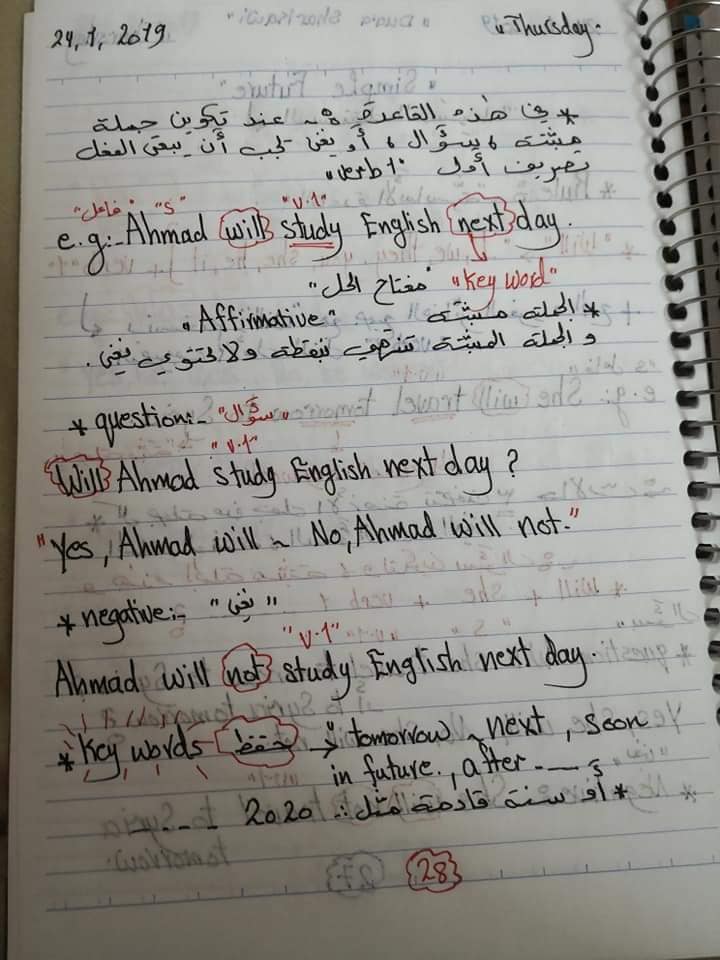 24, 1, 2019 "Thursday:
* في هذه القاعدة :- عند تكوين جملة
مثبتة، سؤال، أو نفي يجب أن يبقى الفعل
تصريف أول "verb 1"
"فاعل" "S" "V.1"
e.g:- Ahmad will study English next day.
"مفتاح الحل" "Key word"
* الجملة مثبتة "Affirmative"
و الجملة المثبتة تنتهي بنقطة ولا تحتوي نفي.
* question:- "سؤال"
"V.1"
Will Ahmad study English next day ?
"Yes, Ahmad will ~ No, Ahmad will not."
* negative:- "نفي"
"V.1"
Ahmad will not study English next day.
* Key words حفظ → "tomorrow ~ next, soon
in future., after ----
* أو سنة قادمة مثل :- 2020 ----
28